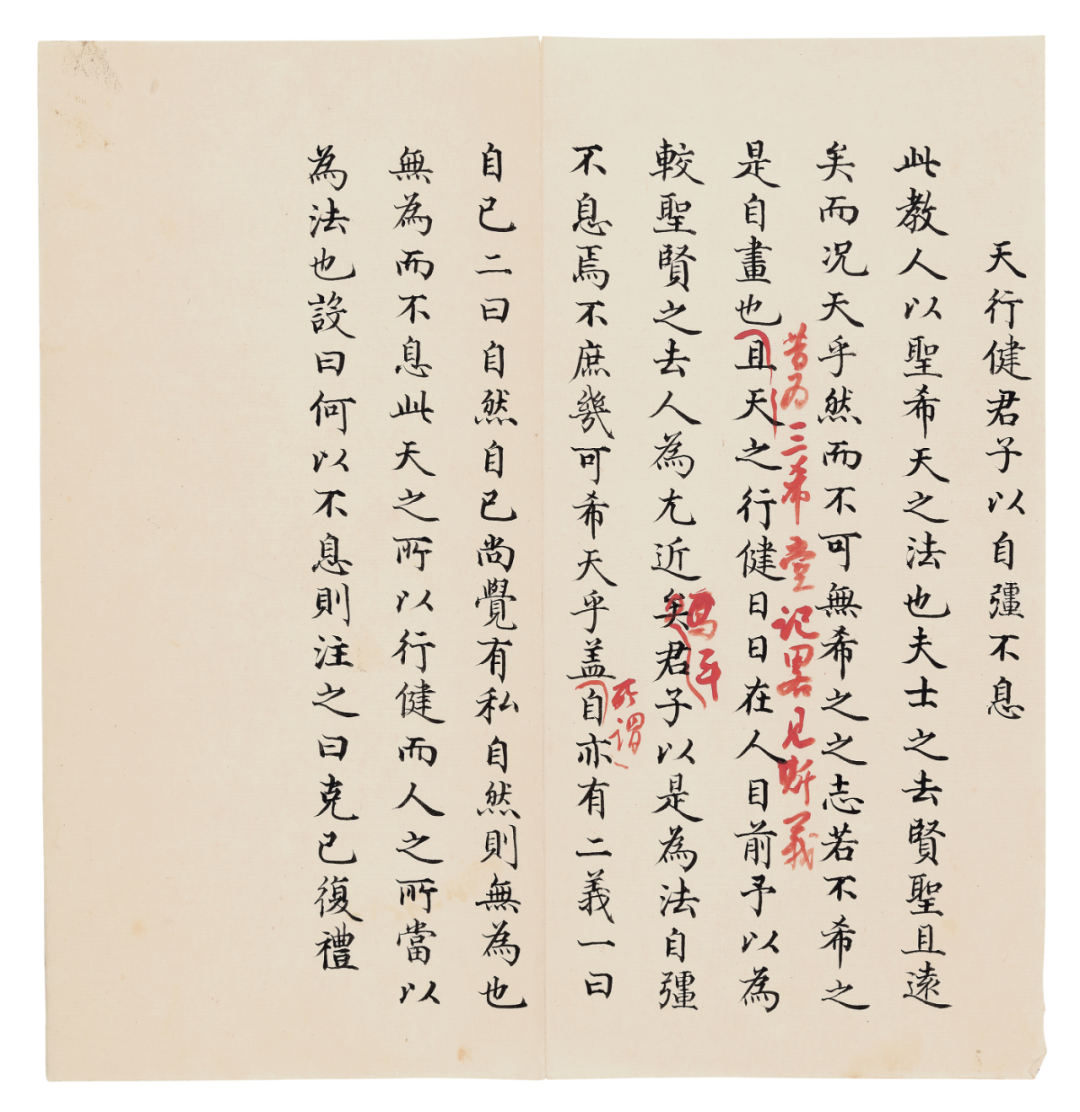 天行健君子以自彊不息
此教人以聖希天之法也夫士之去賢聖且遠
矣而况天乎然而不可無希之之志若不希之
昔為三希堂記畧見斯義
是自畫也且天之行健日日在人目前予以為
焉耳
較聖賢之去人為尤近矣君子以是為法自彊
所謂
不息焉不庶幾可希天乎盖自亦有二義一曰
自已二曰自然自已尚覺有私自然則無為也
無為而不息此天之所以行健而人之所當以
為法也設曰何以不息則注之曰克已復禮